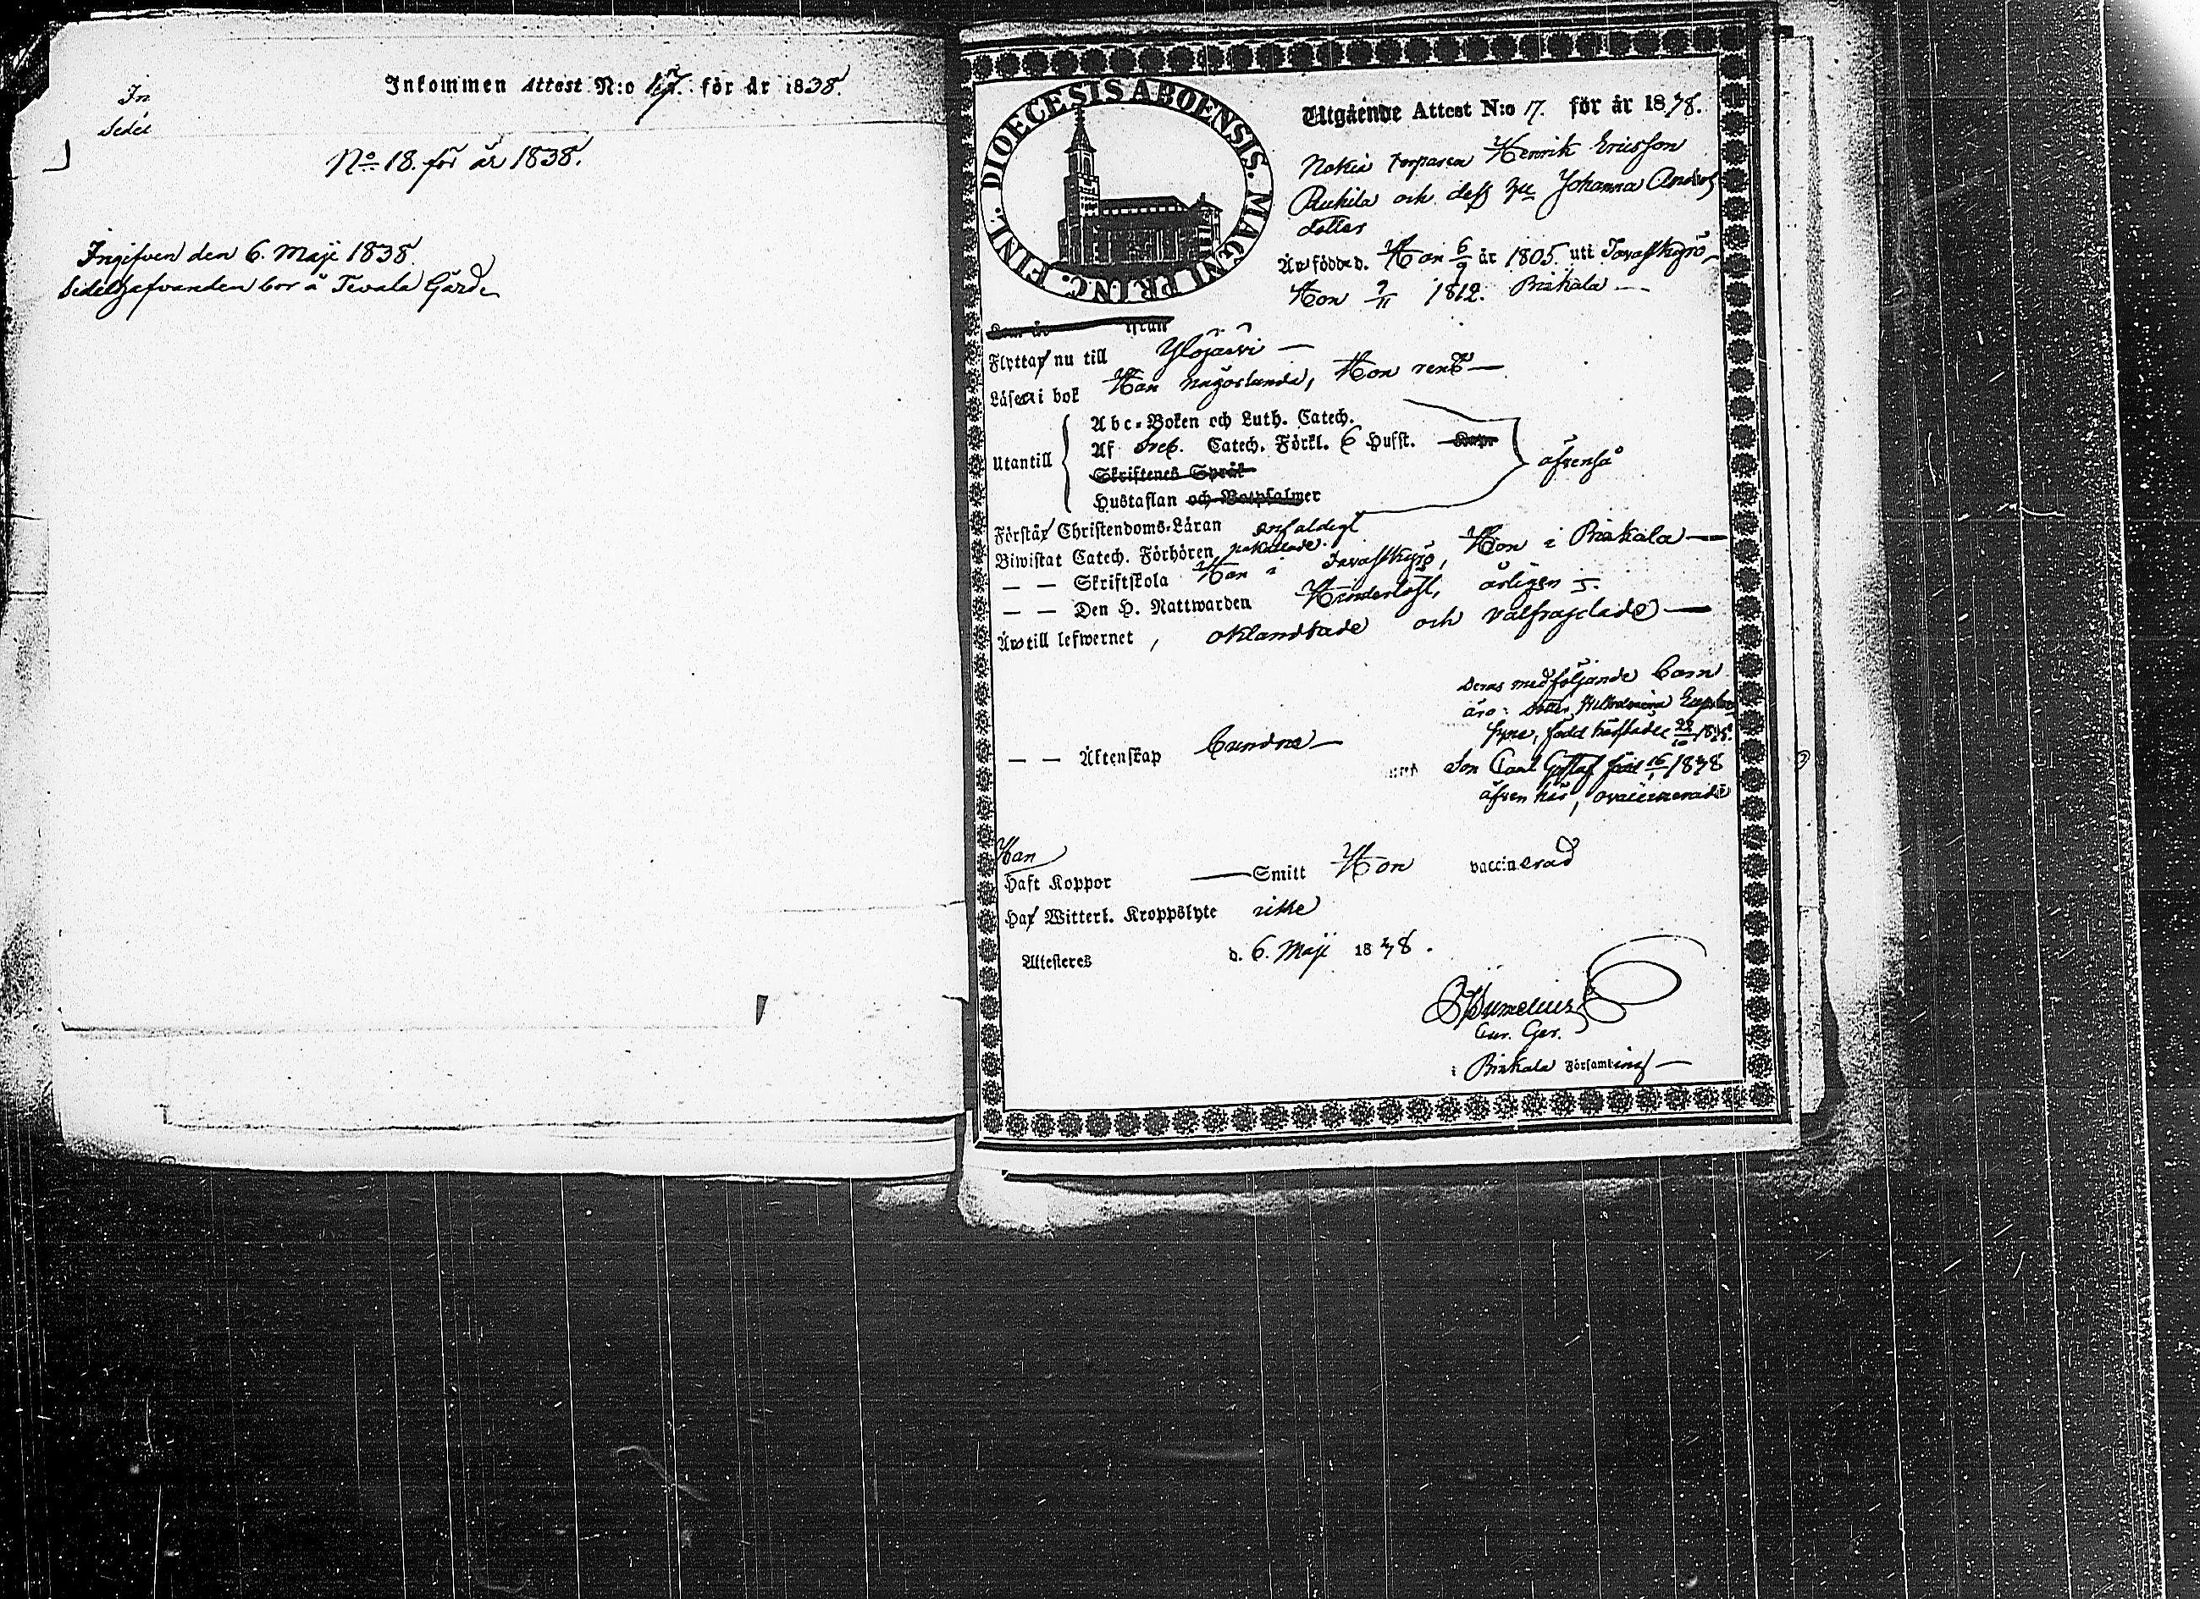 Inkommen Attest N:o 17. för år 1838.
In
Sedel
No 18. för år 1838.
Ingifven den 6. Maji 1838.
Sedelhafvanden bor å Tevala Gård
DIOECESIS ABOENSIS. MAGNI PRINC. FINL.
Utgående Attest N:o 17. för år 1838.
Nokia torparen Henrik Ericsson
och dess hu Johanna Anders
dotter
Äro födde d. Han 6/9 år 1805. uti Tavastkyrö
Hon 9/11 1812. Birkala
Flytta nu till Ylöjärvi
Läsa i bok Han någorlunda, Hon rent
Utantill
Abc-Boken och Luth. Catech.
Af Sveb. Catech. Förkl. 6 Hufst.
Skriftenes Språk
Hustaflan och Botpsalmer
äfvenså
Förstå Christendoms-Läran enfaldigt
Biwistat Catech. Förhören
— — Skriftskola Han i Tavastkyrö, Hon i Birkala
— — Den H. Nattwarden Hinderlöst, årligen
Äro till lefwernet, oklandrade och välfrägdade
Deras medföljande barn
äro: dotter
född härstädes 22/10
Son Carl Gustaf född 16/1 1838
äfven här, ovaccinerade
— — Äktenskap bundne
Han
Haft Koppor — Smitt Hon vaccinerad
Haf Witterl. Kroppslyte icke
Attesteres d. 6. Maji 1838.
i Birkala Församling